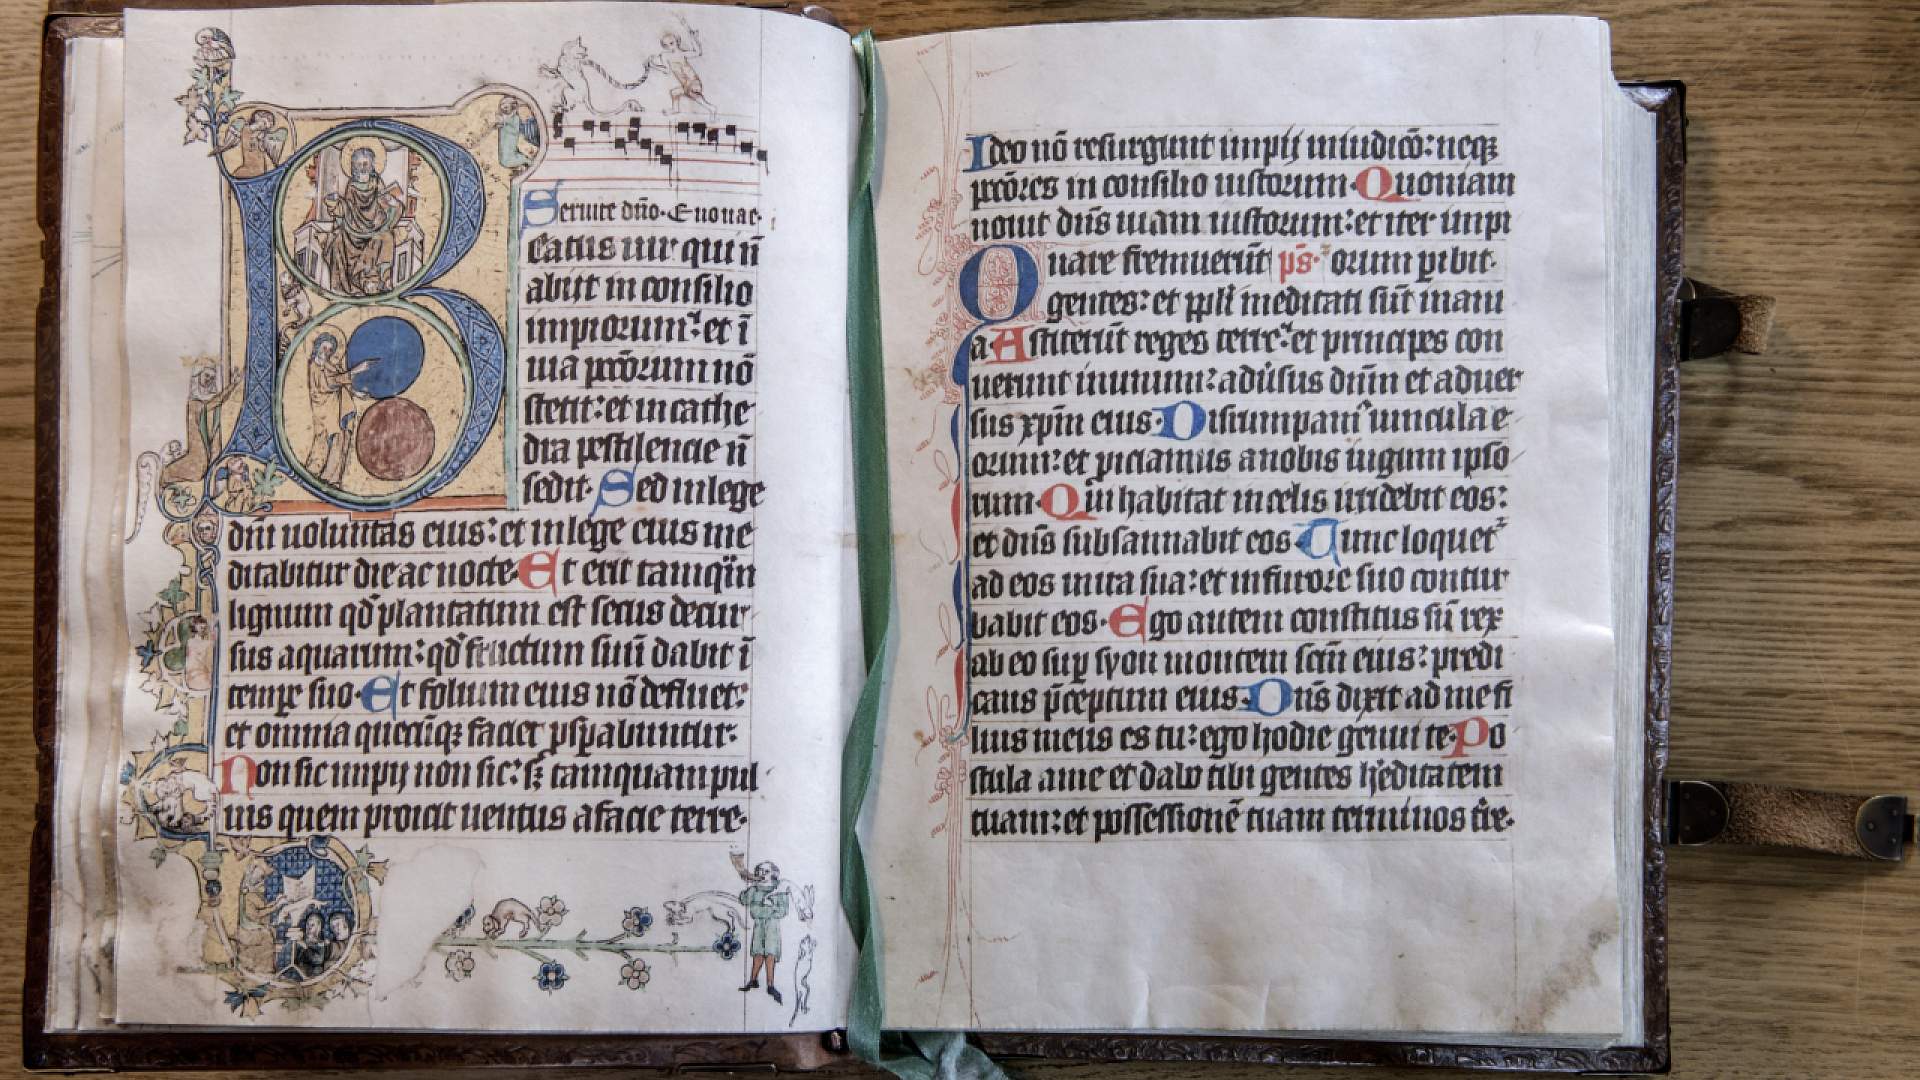 Seruite dño. Euouae.
Beatus uir qui ñ
abijt in consilio
impiorum: et ĩ
uia pcc̃orum nõ
stetit: et in cathe
dra pestilencie ñ
sedit. Sed in lege
dñi uoluntas eius: et in lege eius me
ditabitur die ac nocte. Et erit tamq̃m
lignum qd̃ plantatum est secus decur
sus aquarum: qd̃ fructum suũ dabit ĩ
temꝑe suo. Et folium eius nõ defluet:
et omnia quecũqꝫ faciet ꝓsꝑabuntur.
Non sic impij non sic: sꝫ tamquam pul
uis quem proicit uentus a facie terre.
Ideo nõ resurgunt impij in iudicõ: neqꝫ
pcc̃ores in consilio iustorum. Quoniam
nouit dñs uiam iustorum: et iter impi
Quare fremuerũt p̃s. orum ꝑibit.
gentes: et ppl̃i meditati sũt inani
a. Astiterũt reges terre: et principes con
uenerunt in unum: aduersus dñm et aduer
sus xp̃m eius. Dirumpamꝰ uincula e
orum: et proiciamus a nobis iugum ipso
rum. Qui habitat in celis irridebit eos:
et dñs subsannabit eos. Tunc loquet᷑
ad eos in ira sua: et in furore suo contur
babit eos. Ego autem constitus sũ rex
ab eo suꝑ syon montem scm̃ eius: predi
cans p̃ceptum eius. Dñs dixit ad me fi
lius meus es tu: ego hodie genui te. Po
stula a me et dabo tibi gentes h̃editatem
tuam: et possessionẽ tuam terminos t̃re.